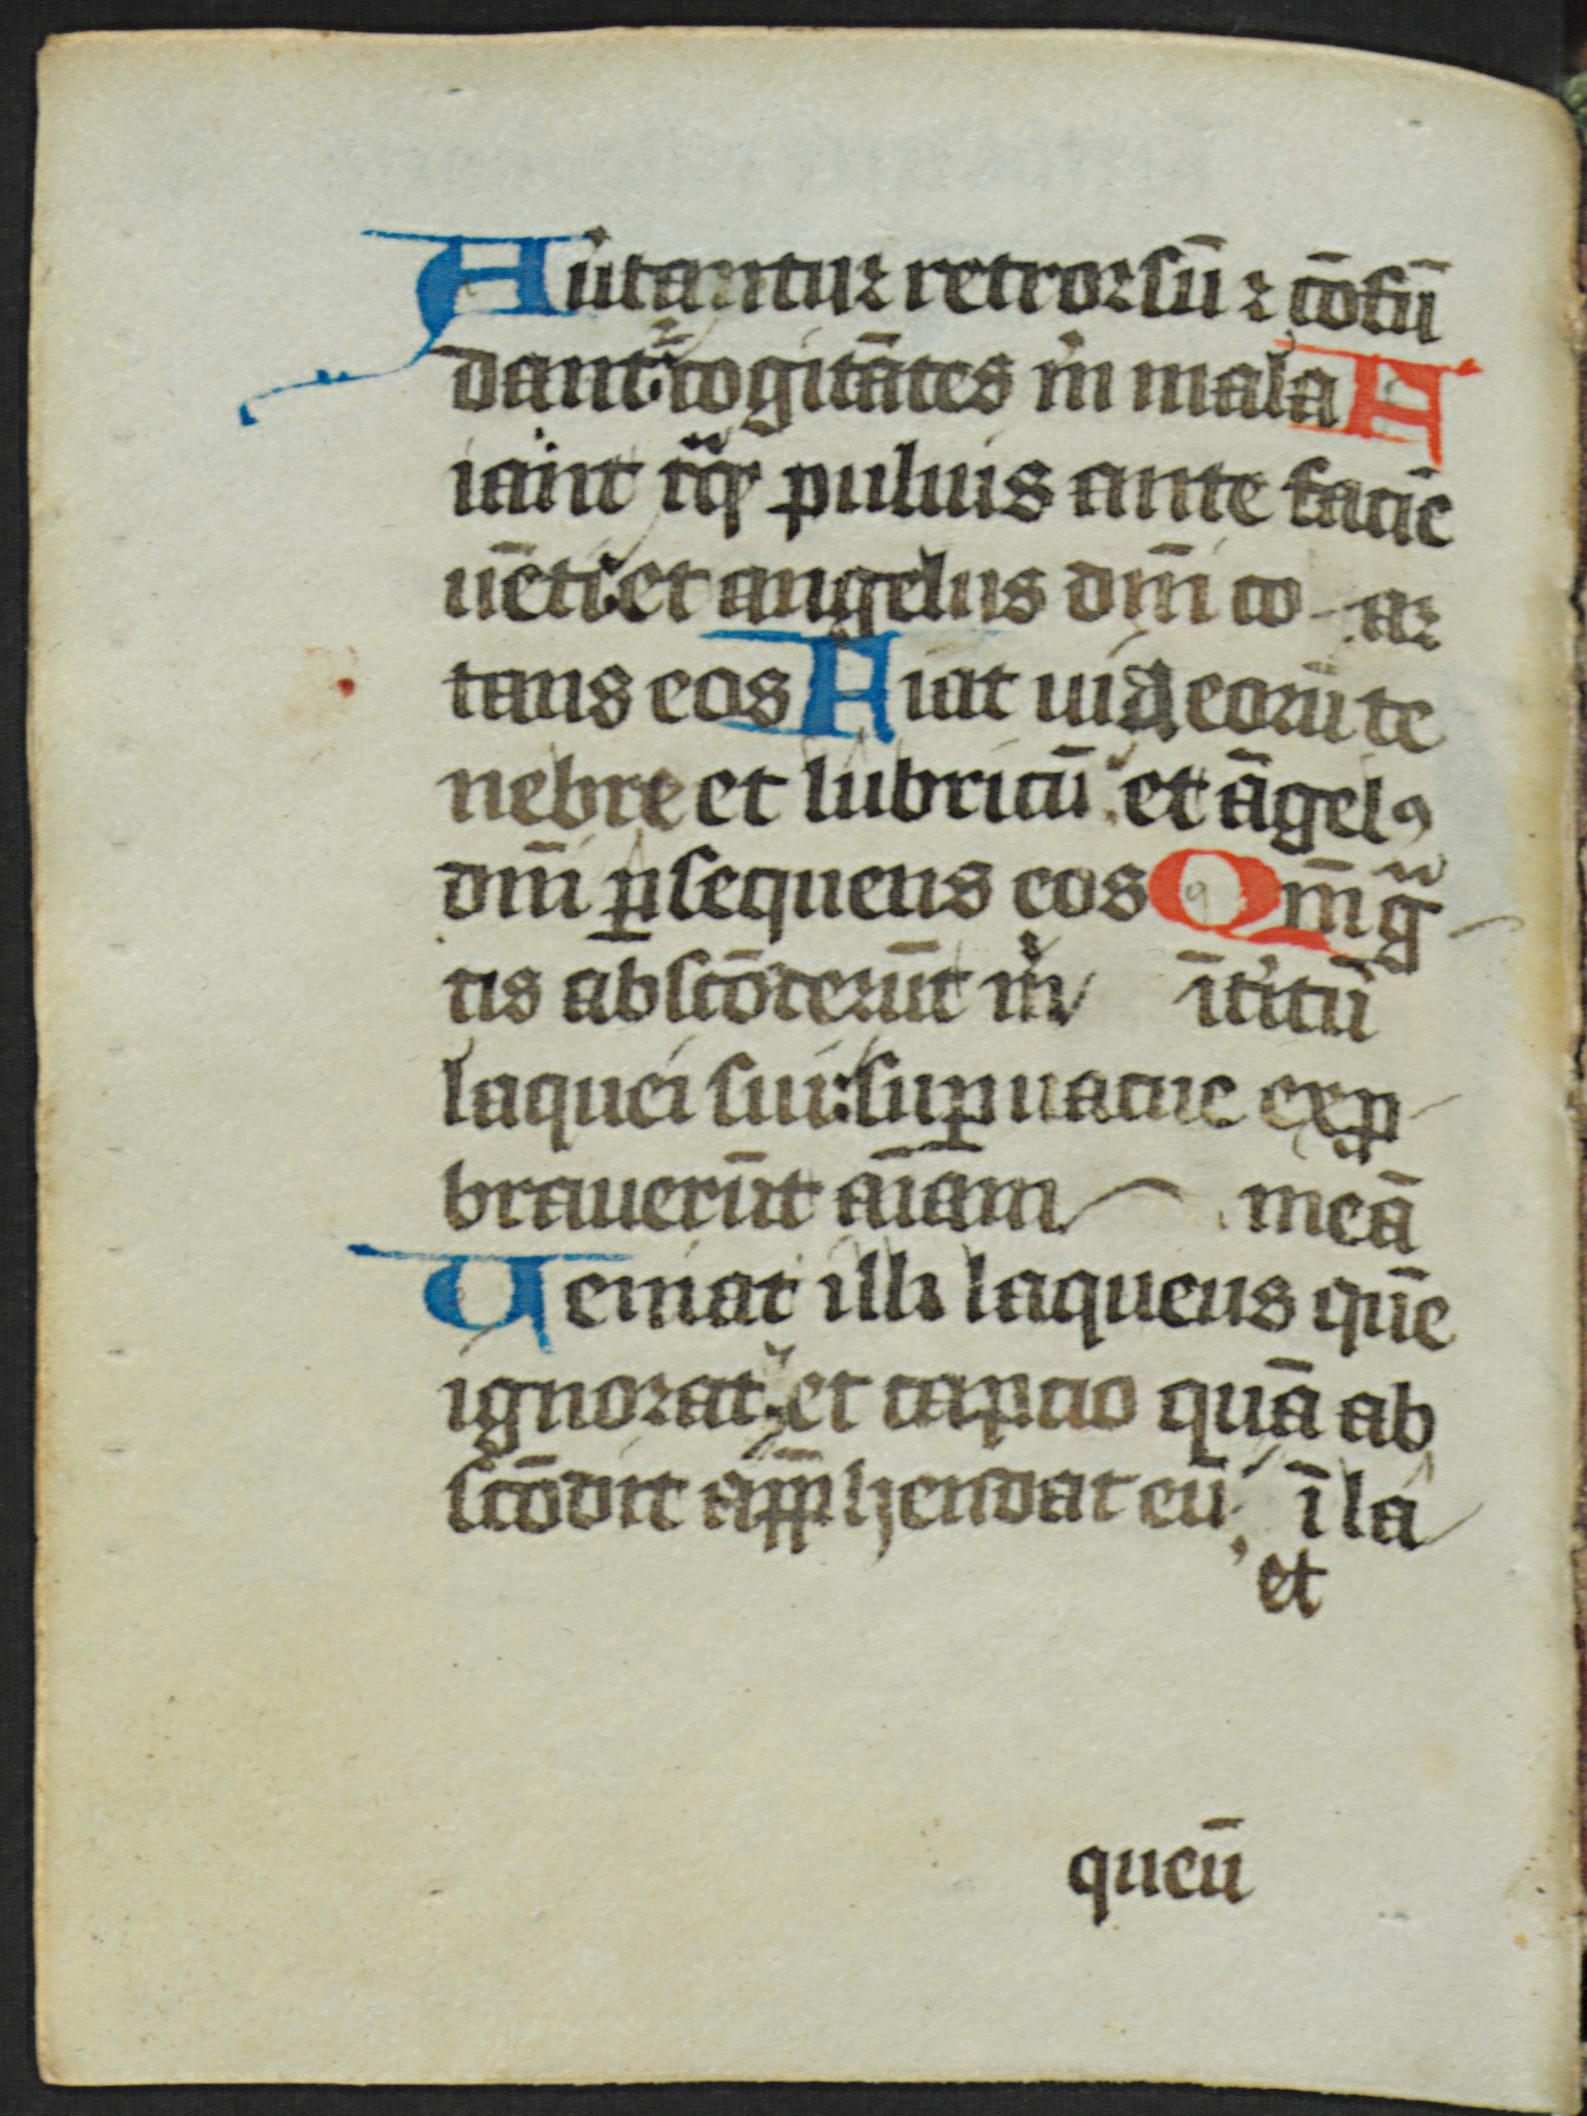 Au̾tantur retrorsū ⁊ cōfū
dant᷑ cogitātes m̍ mala F
iāt tq̄ꝫ puluis ante faciē
uēti et angelus dn̄i co ar
tans eos Fiat uia eorū te
nebre et lubricū et āgelꝰ
dn̄i ꝑsequens eos Qm̄ gͣ
tis abscōderūt m̍ īt̍itū
laquei sui suꝑuacue exꝓ
brauerūt aīam meā
Ueniat illi laqueus quē
ignorat et captio quā ab
scōdit app̄hendat eū ī la
et
queū